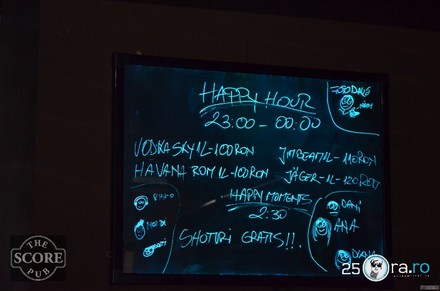 HAPPY HOUR
23:00-00:00
VODKA SKY 1L-100RON
JIMBEAM 1L-110RON
HAVANA ROM 1L-100RON
JÄGER-1L-120RON
HAPPY MOMENTS
2:30
SHOTURI GRATIS!!.
DANI
ANA
THE
SCORE
PUB
25ora.ro